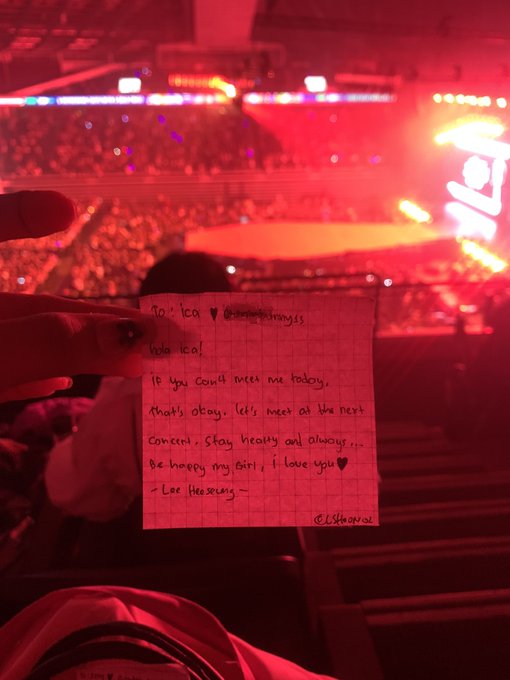 To : ica ♥
hola ica!
if you can't meet me today,
that's okay, let's meet at the next
concert, stay healty and always...
Be happy my Girl, i love you♥
- Lee Heeseung -
©LSHOON02